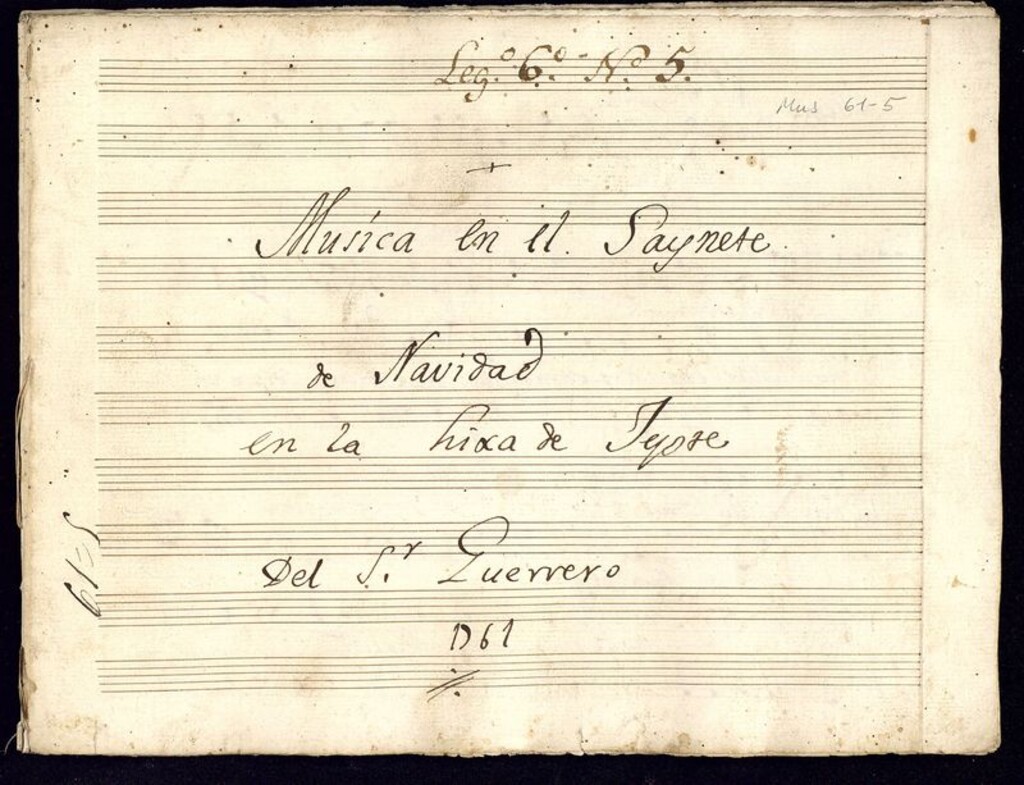 Leg.º 6.º Nº 5.
Mus 61-5
+
Musica en el Saynete
de Navidad
en la hixa de Jepte
Del S.r Guerrero
1761
61=5